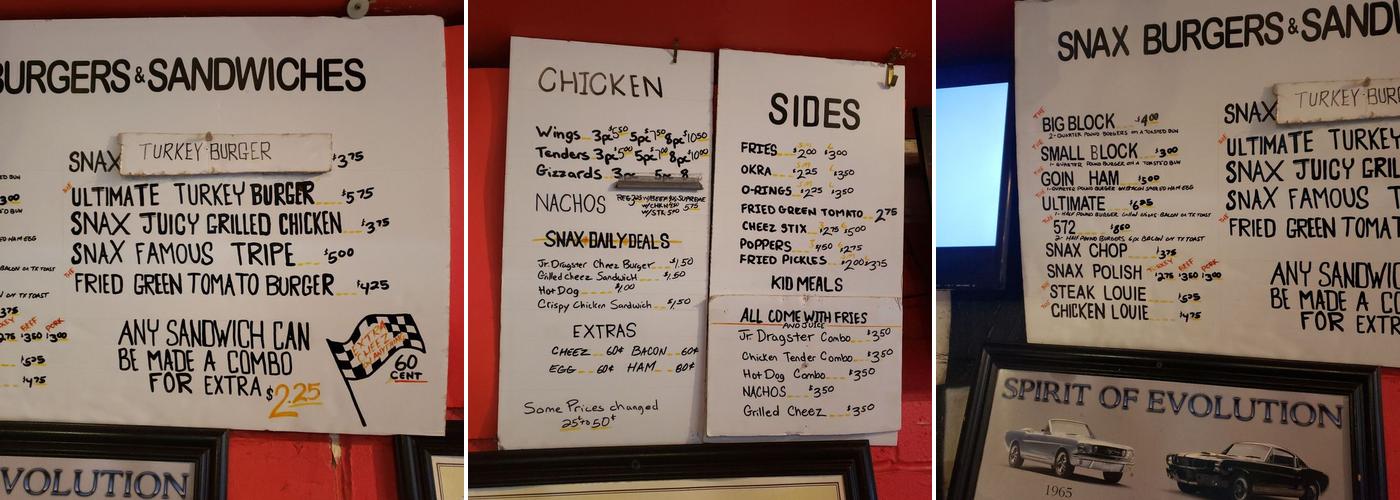 BURGERS & SANDWICHES
SNAX TURKEY BURGER $3.75
THE ULTIMATE TURKEY BURGER $5.75
SNAX JUICY GRILLED CHICKEN $3.75
SNAX FAMOUS TRIPE $5.00
THE FRIED GREEN TOMATO BURGER $4.25
ANY SANDWICH CAN
BE MADE A COMBO
FOR EXTRA $2.25
EXTRA
CHEEZ
60
CENT
VOLUTION
CHICKEN
Wings 3pc $5.50 5pc $7.50 8pc $10.50
Tenders 3pc $5.00 5pc $7.00 8pc $10.00
Gizzards 3pc 5pc 8
NACHOS
SNAX DAILY DEALS
Jr. Dragster Cheez Burger $1.50
Grilled Cheez Sandwich $1.50
Hot Dog $1.00
Crispy Chicken Sandwich $1.50
EXTRAS
CHEEZ 60¢ BACON 60¢
EGG 60¢ HAM 80¢
Some Prices changed
25¢ to 50¢
SIDES
FRIES $2.00 $3.00
OKRA $2.25 $3.50
O-RINGS $2.25 $3.50
FRIED GREEN TOMATO 2.75
CHEEZ STIX $2.75 $5.00
POPPERS $1.50 $2.75
FRIED PICKLES $2.00 $3.75
KID MEALS
ALL COME WITH FRIES
AND JUICE
Jr. Dragster Combo $3.50
Chicken Tender Combo $3.50
Hot Dog Combo $3.50
NACHOS $3.50
Grilled Cheez $3.50
SNAX BURGERS & SAND
THE BIG BLOCK $4.00
2-QUARTER POUND BURGERS ON A TOASTED BUN
THE SMALL BLOCK $3.00
1-QUARTER POUND BURGER ON A TOASTED BUN
THE GOIN HAM $5.00
THE ULTIMATE $6.25
THE 572 $8.50
SNAX CHOP $3.75
SNAX POLISH TURKEY $2.75 BEEF $3.50 PORK $3.00
THE STEAK LOUIE $5.25
THE CHICKEN LOUIE $4.75
SNAX TURKEY BURG
THE ULTIMATE TURKEY
SNAX JUICY GRILL
SNAX FAMOUS T
THE FRIED GREEN TOM
ANY SANDWIC
BE MADE A CO
FOR EXTR
SPIRIT OF EVOLUTION
1965